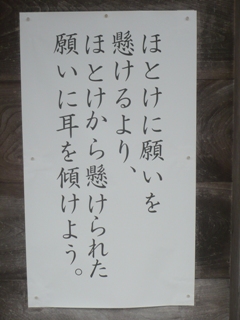 ほとけに願いを
懸けるより、
ほとけから懸けられた
願いに耳を傾けよう。